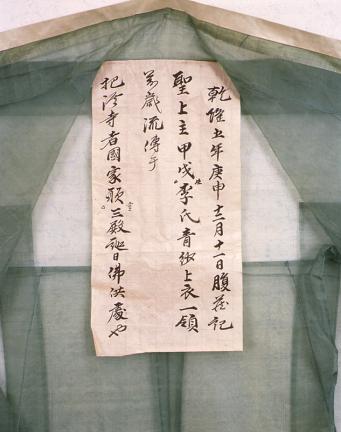 乾隆五年庚申十二月十一日腹藏記
聖上主甲戌生李氏青紗上衣一領
萬歲流傳于
把溪寺者國家願堂三殿誕日佛供處也